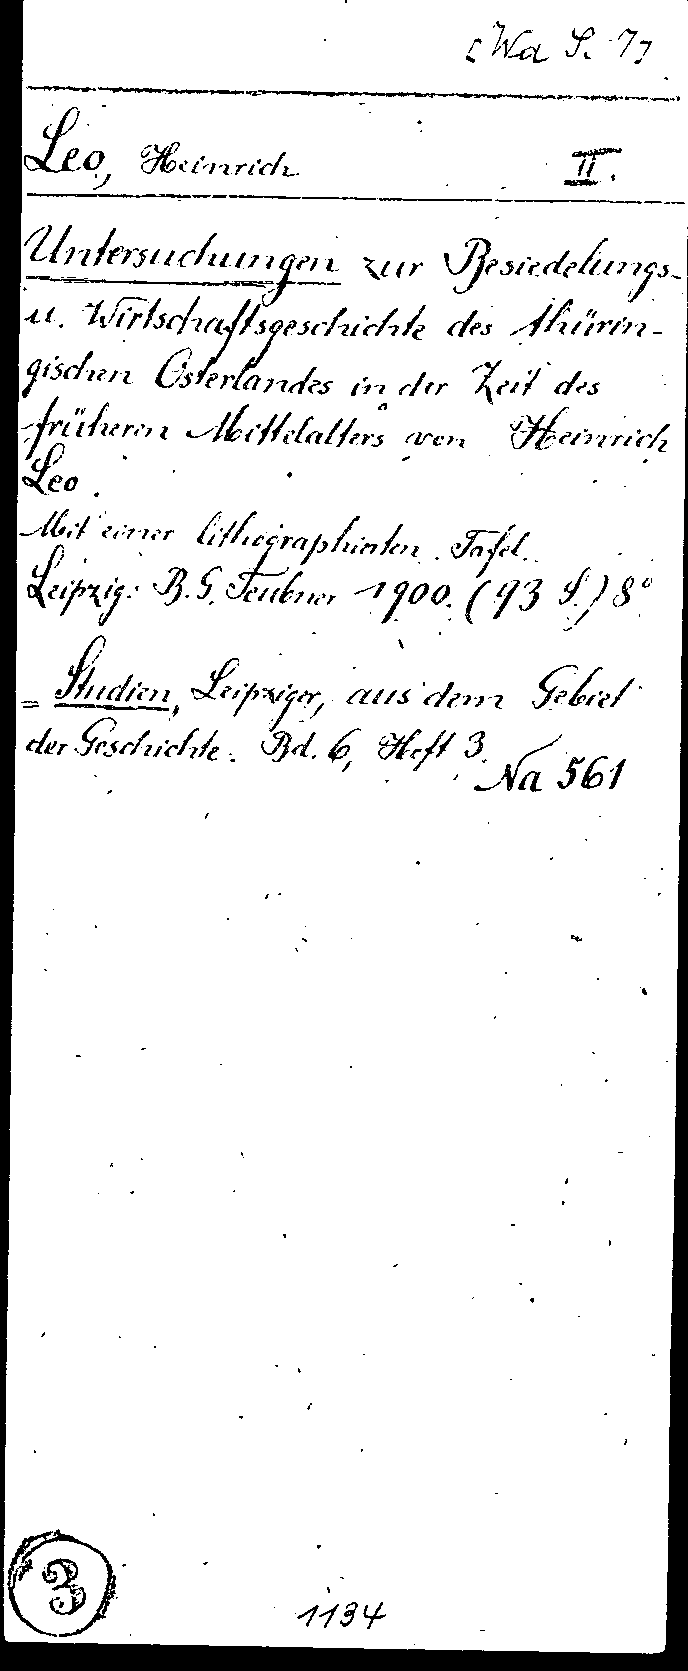 [Wa S. 7]
Leo, Heinrich II.
Untersuchungen zur Besiedelungs-
u. Wirtschaftsgeschichte des thürin-
gischen Osterlandes in der Zeit des
früheren Mittelalters von Heinrich
Leo.
Mit einer lithographierten Tafel.
Leipzig: B. G. Teubner 1900. (93 S.) 8°
= Studien, Leipziger, aus dem Gebiet
der Geschichte. Bd. 6, Heft 3.
Na 561
3
1134